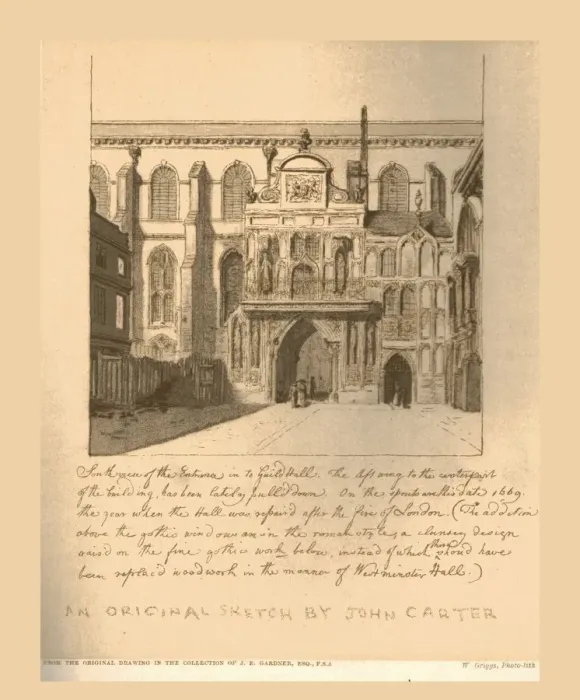 South view of the Entrance in to Guild Hall. The left wing to the center part
of the building, has been lately pull'd down. On the spouts in this date 1669.
the year when the Hall was repair'd after the fire of London. (The addition
above the gothic windows are in the roman style, a clumsey design
raised on the fine gothic work below, instead of which there shoud have
been replac'd woodwork in the manner of Westminster Hall.)
AN ORIGINAL SKETCH BY JOHN CARTER
FROM THE ORIGINAL DRAWING IN THE COLLECTION OF J. E. GARDNER, ESQ., F.S.A
W. Griggs, Photo-lith